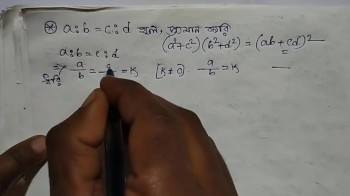 ⊛ a:b = c:d হলে, প্রমাণ করি
(a²+c²)(b²+d²) = (ab+cd)²
a:b = c:d
ধরি, a/b = = K [K≠0] a/b = K